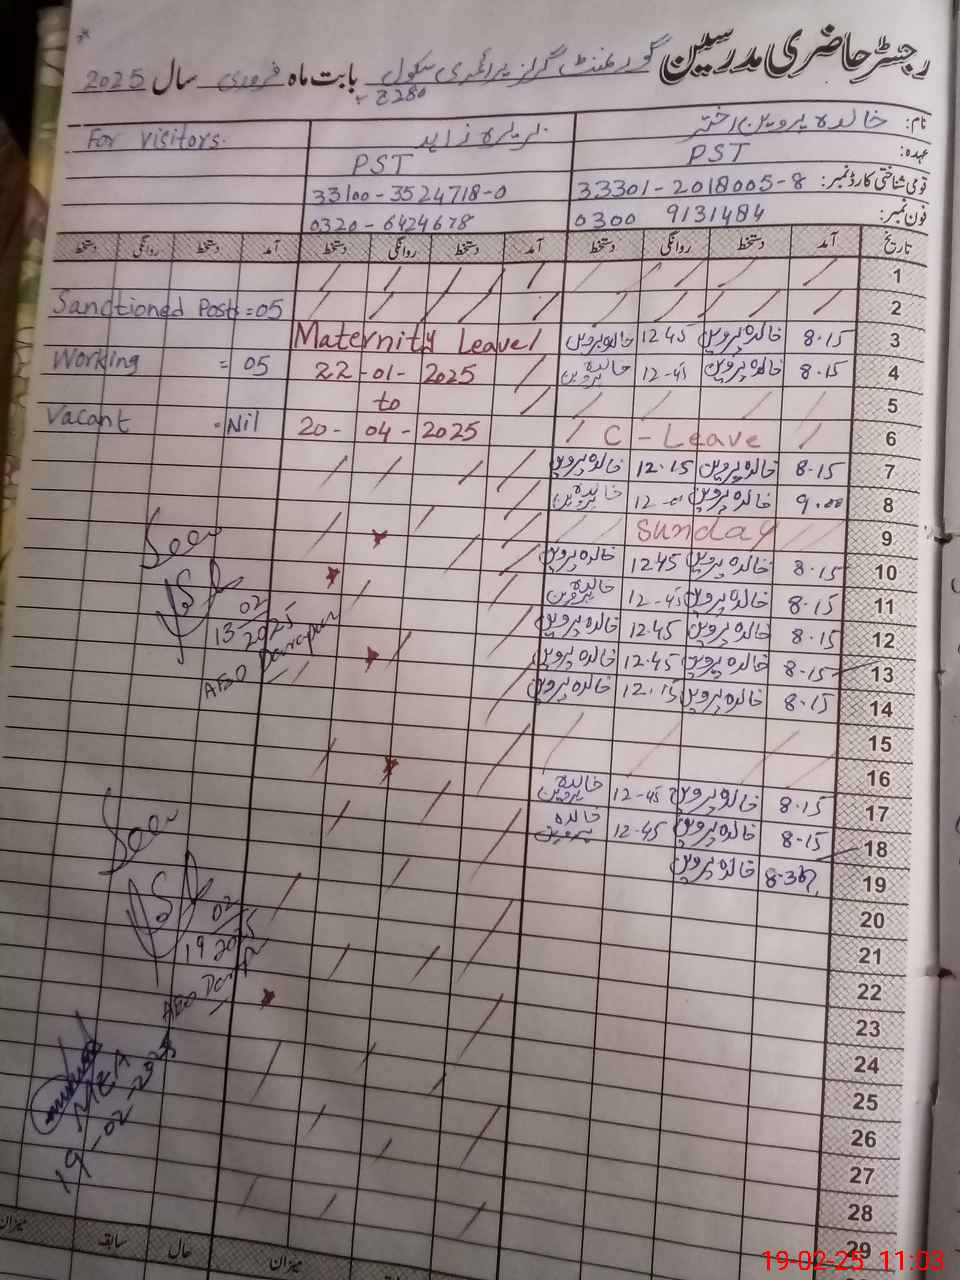 رجسٹر حاضری مدرسین گورنمنٹ گرلز پرائمری سکول بابت ماہ فروری سال 2025
280 ج ب
نام: خالدہ پروین اختر زاہد For visitors.
عہدہ: PST PST
قومی شناختی کارڈ نمبر: 33301-2018005-8 33100-3524718-0
فون نمبر: 0300 9131484 0320-6424678
تاریخ آمد دستخط روانگی دستخط آمد دستخط روانگی دستخط آمد دستخط روانگی دستخط
1
2 Sanctioned Posts = 05
3 8.15 خالدہ پروین 12-45 خالدہ پروین Maternity Leave
4 8.15 خالدہ پروین 12-45 خالدہ پروین 22-01-2025 Working = 05
5 to
6 C-Leave 20-04-2025 Vacant = Nil
7 8.15 خالدہ پروین 12.15 خالدہ پروین
8 9.00 خالدہ پروین 12- خالدہ پروین
9 Sunday
10 8.15 خالدہ پروین 12.45 خالدہ پروین
11 8.15 خالدہ پروین 12-45 خالدہ پروین
12 8.15 خالدہ پروین 12.45 خالدہ پروین
13 8.15 خالدہ پروین 12.45 خالدہ پروین
14 8.15 خالدہ پروین 12.15 خالدہ پروین
15
16
17 8.15 خالدہ پروین 12-45 خالدہ پروین
18 8.15 خالدہ پروین 12.45 خالدہ پروین
19 خالدہ پروین
20
21
22
23
24
25
26
27
28
29
Seen
13 02 2025
AEO
Seen
19 02 2025
AEO
MEA
19-02-2025
میزان حال سابقہ میزان
19-02-25 11:03